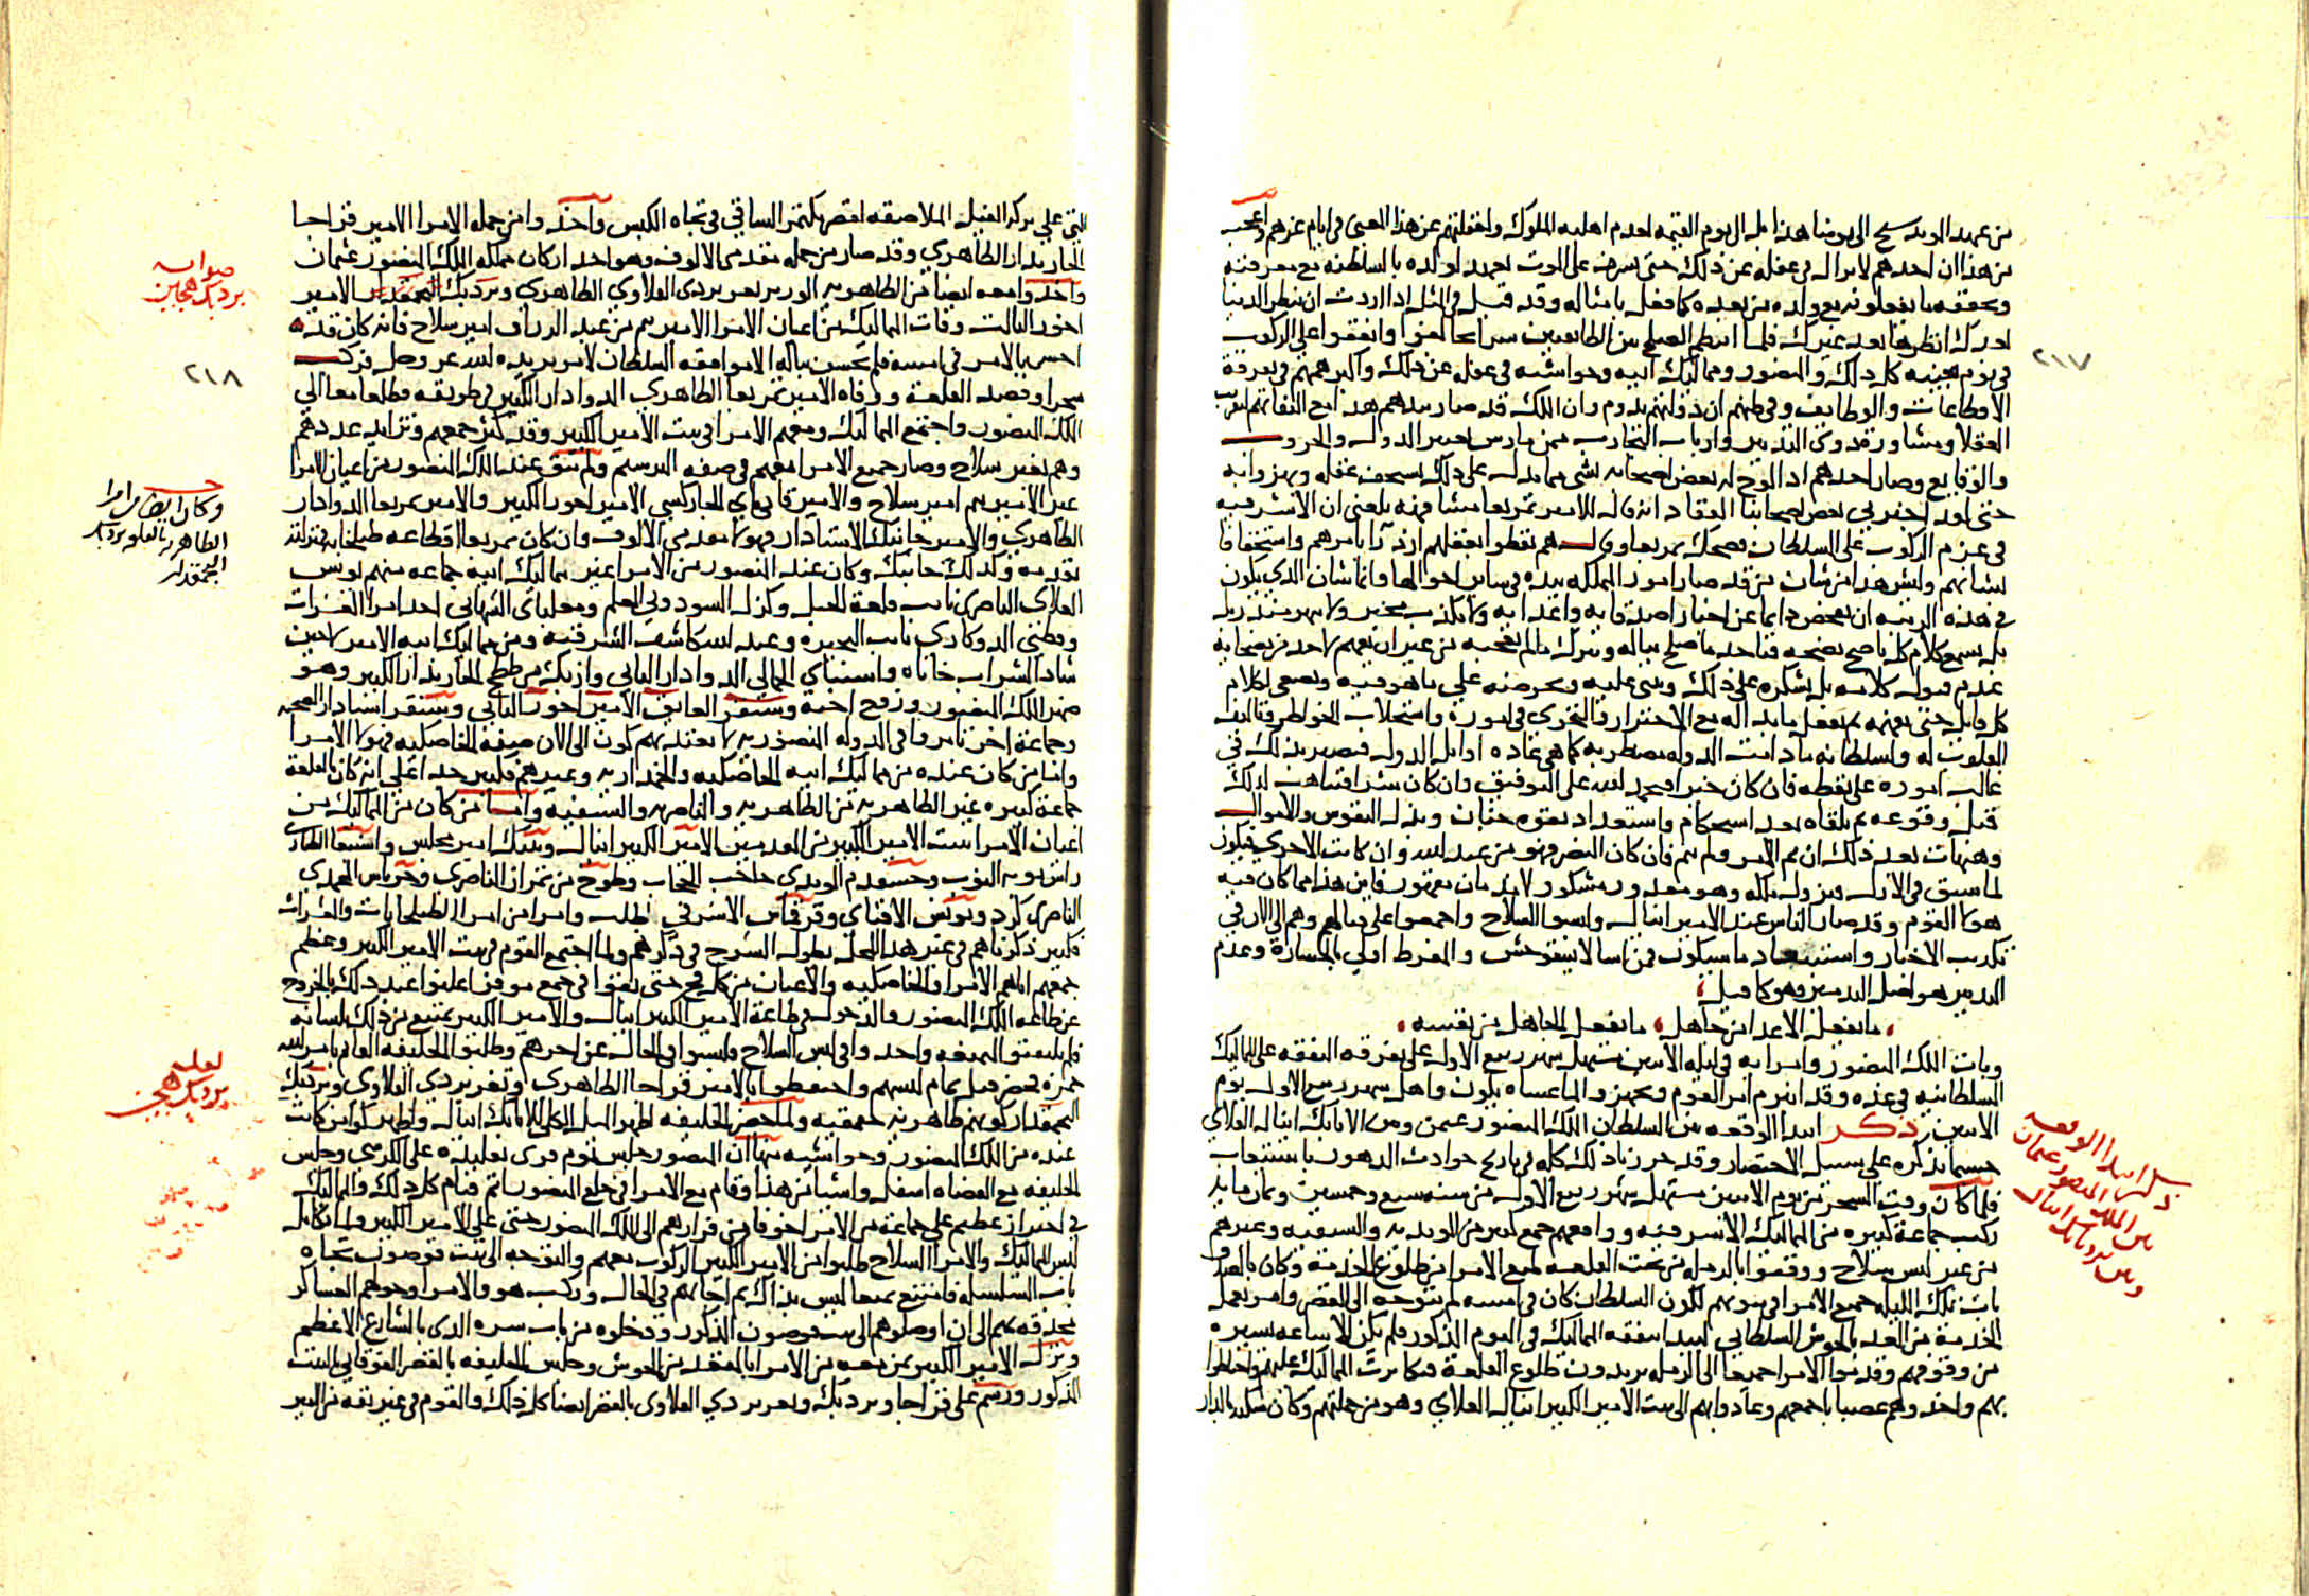 من عهد المويد شيخ الى يومنا هذا بل الى يوم القيمه لعدم اهليه الملوك ولغفلتهم عن هذا المعنى في ايام عزهم واعجب
من هذا ان احدهم لا يزال في غفله عن ذلك حتى يشرف على الموت فيعهد لولده بالسلطنه مع معرفته
وتحققه ما يفعلونه مع ولده من بعده كما فعل بامثاله وقد قيل في المثل اذا اردت ان تنظر الدنيا
بعدك انظرها بعد غيرك فلما انتظم الصلح بين الطايفتين سرا تحالفوا واتفقوا على الركوب
في يوم بعينه كل ذلك والمنصور ومماليك ابيه وحواشيه في غفله عن ذلك واكبر همهم في تفرقة
الاقطاعات والوظايف وفي ظنهم ان دولتهم تدوم وان الملك قد صار بيدهم هذا مع التفاتهم لتقريب
العقلا ومشاورة ذوي التدبير وارباب التجارب ممن مارس تغيير الدول والحروب
والوقايع وصار احدهم اذا لوح له بعض اصحابه بشي مما يدل على ذلك يسخف عقله ويهزوا به
حتى لقد اخبرني بعض اصحابنا الثقات انه قال للامير تمربغا مشافهة بلغني ان الاشرفيه
في عزم الركوب على السلطان فضحك تمربغا وقال هم يقطوا بعقلهم ازدرآ بامرهم واستخفافا
لشانهم وليس هذا من شان من قد صار امور المملكه بيده في ساير احوالها وانما شان الذي يكون
في هذه الرتبه ان يفحص دايما عن اخبار اصدقايه واعدايه ولا يكذب مخبر ولا ينهر منذر بل
بل يسمع كلام كل ناصح بنصحه فياخذ ما صلح بباله ويترك ما لم يعجبه من غير ان يفهم لاحد من نصحايه
عدم قبول كلامه بل يشكره على ذلك ويثني عليه ويحرضه على ما هو فيه ويصغي لكلام
كل قايل حتى يفهمه ثم يفعل ما بدا له مع الاحتراز والتحري في اموره واستجلاب الخواطر وتاليف
القلوب له ولسلطانه ما دامت الدوله مضطربه كما هي عادة اوايل الدول فيصير بذلك في
غالب اموره على يقظه فان كان خيرا فيحمد الله على التوفيق وان كان شرا فيتاهب لذلك
قبل وقوعه ثم يلقاه بعد استحكام واستعداد بقوه جنان وبذل النفوس والاموال
وهيهات بعد ذلك ان تم الامر ولم يتم فان كان النصر فهو من عند الله وان كانت الاخرى فيكون
لما سبق في الازل فيزول ملكه وهو معذور مشكور لا يذمان معتمرون فاين هذا مما كان فيه
هولا القوم وقد صار الناس عند الامير اينال ولبسوا السلاح واجمعوا على قتالهم وهم الى الان في
تكذيب الاخبار واستبعاد ما سيكون فمن اسا لا يستوحش والمفرط اولى بالخساره وعدم
التدبير هو اصل التدمير وهو كما قيل
ما يفعل الاعدا من جاهل ما يفعل الجاهل من نفسه
وبات الملك المنصور وامرايه في ليله الاثنين مستهل شهر ربيع الاول على تفرقه النفقه على المماليك
السلطانيه في غده وقد انبرم امر القوم وتجهزوا لما عساه يكون واهل شهر ربيع الاول يوم
الاثنين ذكر ابتدا الوقعه بين السلطان الملك المنصور عثمن وبين الاتابك اينال العلاي
حسبما نذكره على سبيل الاختصار وقد حررنا ذلك كله في تاريخ حوادث الدهور باستيعاب
فلما كان وقت السحر من يوم الاثنين مستهل شهر ربيع الاول من سنه سبع وخمسين وثمان مايه
ركب جماعة كبيره من المماليك الاشرفيه ووافقهم جمع كبير من المويديه والسيفيه وغيرهم
من غير لبس سلاح ووقفوا بالرميله من تحت القلعه لمنع الامرا من طلوع الخدمة وكان بالقلعه
بات تلك الليله جميع الامرا في بيوتهم لكون السلطان كان في امسه لم يتوجه الى القصر وامر بعمل
الخدمة من الغد بالحوش السلطاني لسبب نفقه المماليك في اليوم المذكور فلم يكن الا ساعه يسيره
من وقوفهم وقدموا الامرا جميعا الى الرميله يريدون طلوع القلعة فتكاثرت المماليك عليهم واحتاطوا
بهم واخذوهم غصبا باجمعهم وعادوا بهم الى بيت الامير الكبير اينال العلاي وهو من جملتهم وكان سكنه بالدار
ذكر ابتدا الوقعه
بين الملك المنصور عثمان
وبين الاتابك اينال
٢١٧
التي على بركة الفيل الملاصقه لقصر بكتمر الساقي في تجاه الكبش واخذوا من جمله الامرا الامير قراجا
الخازندار الظاهري وقد صار من جمله مقدمي الالوف وهو احد اركان مملكه الملك المنصور عثمان
واخذوا معه ايضا من الظاهريه الوزير تغري بردي القلاوي الظاهري وبردبك البجمقدار الامير
اخور الثالث وفات المماليك من اعيان الامرا الامير تنم من عبد الرزاق امير سلاح فانه كان قد
احس بالامر في امسه فلم يحسن بباله الا موافقه السلطان لامر يريده الله عز وجل فركب
سحرا وقصد القلعة ووافاه الامير تمربغا الظاهري الدوادار الكبير في طريقه وطلعا معا الى
الملك المنصور واجتمع المماليك ومعهم الامرا في بيت الامير الكبير وقد كثر جمعهم وتزايد عددهم
وهم بغير سلاح وصار جميع الامرا معهم في صفه الترسيم ولم يبق عند الملك المنصور من اعيان الامرا
غير الامير تنم امير سلاح والامير قاني باي الجاركسي الامير اخور الكبير والامير تمربغا الدوادار
الظاهري والامير جانبك الاستادار فهولا مقدمي الالوف وان كان تمربغا اقطاعه طبلخاناه فمنزلته
تقدمه وكذلك جانبك وكان عند المنصور من الامرا غير مماليك ابيه جماعه منهم يونس
العلاي الناصري نايب قلعة الجبل وكزل السودوني المعلم ومغلباي الشهابي احد امرا العشرات
وقطني الدوكاري نايب البحيره وعبد الله كاشف الشرقيه ومن مماليك ابيه الامير لاجين
شاد الشراب خاناه واسنباي الجمالي الدوادار الثاني وازبك من ططخ الخازندار الكبير وهو
صهر الملك المنصور وزوج اخته وسنقر العايق الامير اخور الثاني وسنقر استادار الصحبه
وجماعة اخر تامروا في الدوله المنصوريه لا يعتد بهم لكون الى الان صفة الخاصكيه فهولا الامرا
واما من كان عنده من مماليك ابيه الخاصكيه والجمداريه وغيرهم فكثير جدا على انه كان بالقلعة
جماعة كبيره غير الظاهريه من الظاهريه والناصريه والسيفيه واما من كان من المماليك من
اعيان الامرا ببيت الامير الكبير من المقدمين الامير الكبير اينال وتنبك امير مجلس واسنبغا الطياري
راس نوبه النوب وخشقدم المويدي حاجب الحجاب وطوخ من تمراز الناصري وجرباش المحمدي
الناصري كرد ويونس الاقباي وقرقماس الاشرفي الجلب واما من امرا الطبلخانات والعشرات
فكثير ذكرناهم في غير هذا المحل يطول الشرح في ذكرهم ولما اجتمع القوم في بيت الامير الكبير وعظم
جمعهم اتاهم الامرا والخاصكيه والاعيان من كل فج حتى بقوا في جمع موفور اعلنوا عند ذلك بالخروج
عن طاعه الملك المنصور والدخول في طاعة الامير الكبير اينال والامير الكبير يمتنع من ذلك بلسانه
فلم يلتفتوا لتمنعه واخذوا في لبس السلاح فلبسوا في الحال عن اخرهم وطلبوا الخليفه القايم بامر الله
حمزه فحضر قبل تمام لبسهم واحتفظوا بالامير قراجا الظاهري وتغري بردي القلاوي وبردبك
البجمقدار كونهم ظاهريه جقمقيه ولما حضر الخليفه اظهر الميل الكلي للاتابك اينال واظهر كوامن كانت
عنده من الملك المنصور وحواشيه منها ان المنصور جلس يوم قري تقليده على الكرسي وجلس
الخليفه مع القضاه اسفل واشيا من هذا وقام مع الامرا في خلع المنصور اتم قيام كل ذلك والمماليك
في احتراز عظيم على جماعة من الامرا خوفا من فرارهم الى الملك المنصور حتى على الامير الكبير ولما تكامل
لبس المماليك والامرا السلاح طلبوا من الامير الكبير الركوب معهم والتوجه الى بيت قوصون تجاه
باب السلسله فامتنع تمنعا ليس بذاك ثم اجابهم في الحال وركب هو والامرا وحولهم العساكر
محدقه بهم الى ان اوصلوهم الى بيت قوصون المذكور ودخلوه من باب سره الذي بالشارع الاعظم
ونزل الامير الكبير بمن معه من الامرا بالمقعد من الحوش وجلس الخليفه بالقصر الفوقاني بالبيت
المذكور ورسم على قراجا وبردبك وتغري بردي القلاوي بالقصر ايضا كل ذلك والقوم في غير ثقه من الامير
صوابه
بردبك هجين
٢١٨
وكان ايضا من امرا
الظاهريه بالقلعه بردبك
البجمقدار
لعله
بردبك هجين